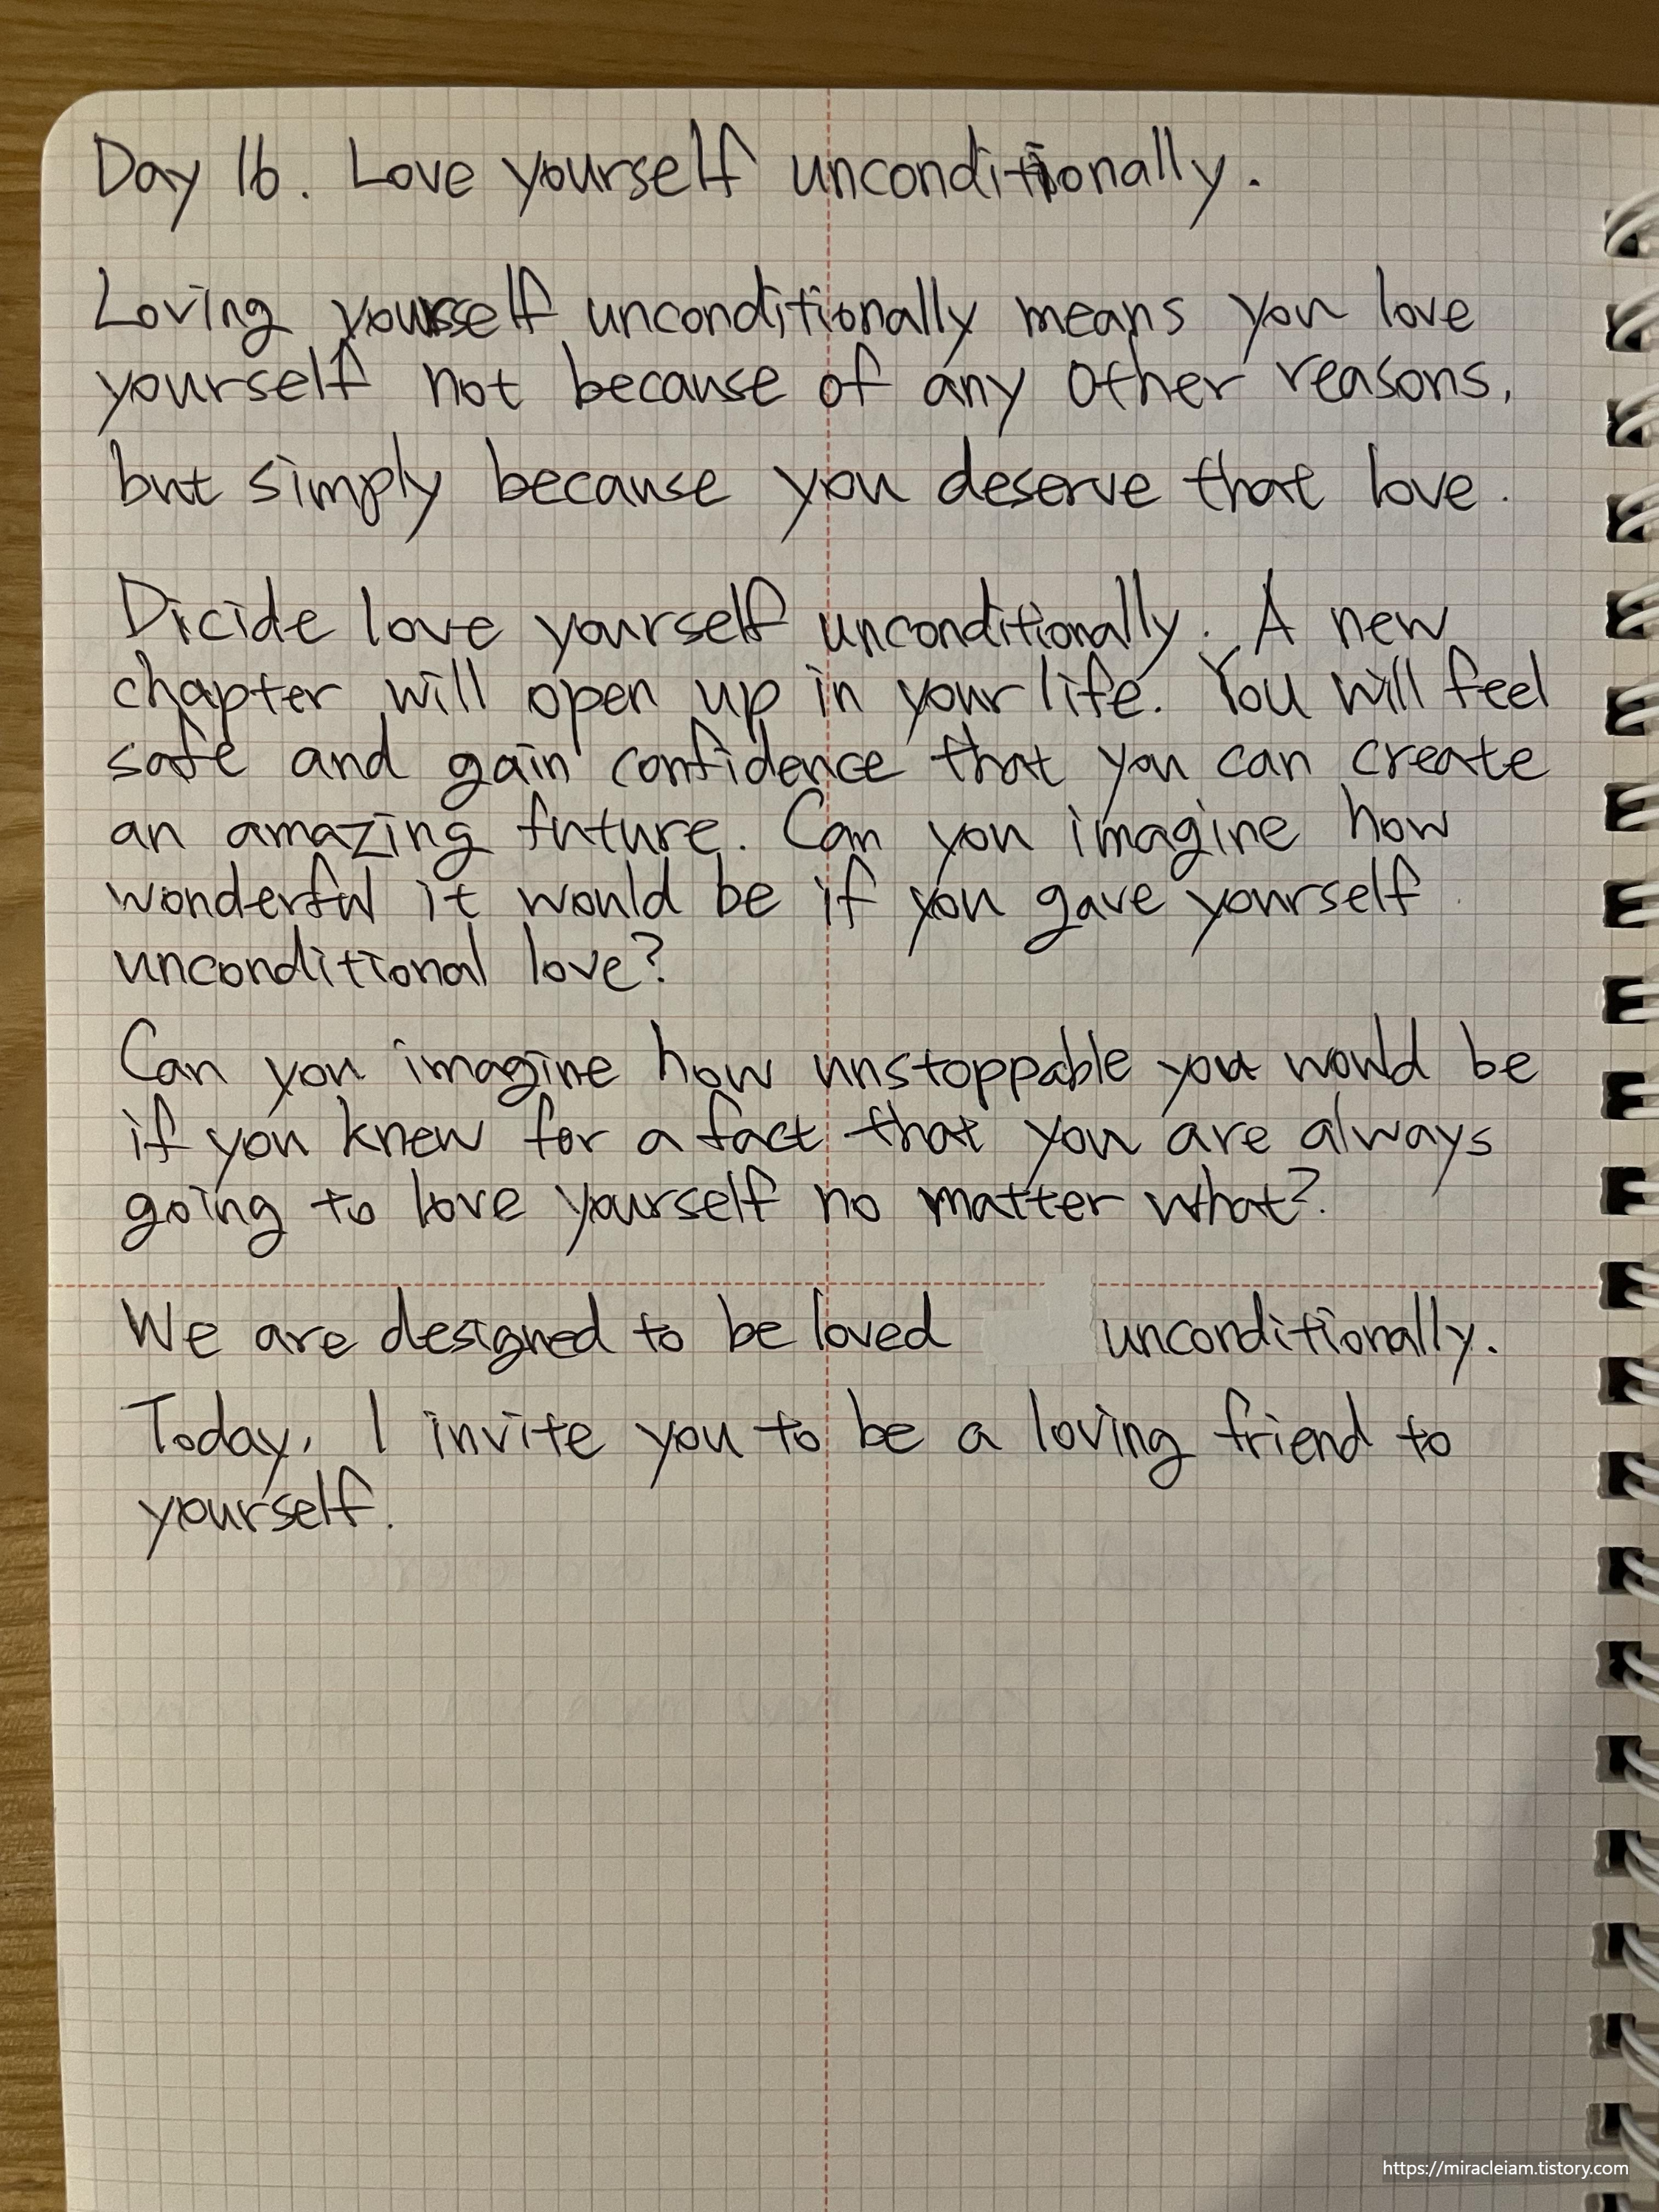 Day 16. Love yourself unconditionally.
Loving yourself unconditionally means you love
yourself not because of any other reasons,
but simply because you deserve that love.
Dicide love yourself unconditionally. A new
chapter will open up in your life. You will feel
safe and gain confidence that you can create
an amazing future. Can you imagine how
wonderful it would be if you gave yourself
unconditional love?
Can you imagine how unstoppable you would be
if you knew for a fact that you are always
going to love yourself no matter what?
We are designed to be loved unconditionally.
Today, I invite you to be a loving friend to
yourself.
https://miracleiam.tistory.com